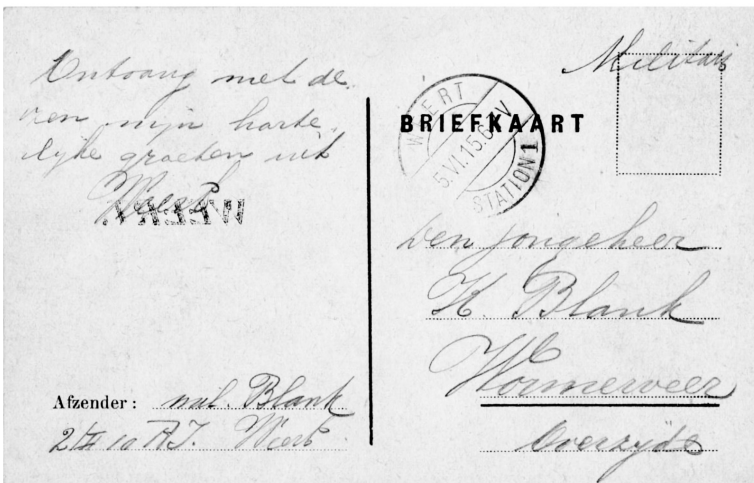 Ontvang met de
zen mijn harte
lyke groeten uit
Weert
WEERT.
Afzender: mil. Blank
2 II 10 R.I. Weert.
Militair
BRIEFKAART
WEERT
5.VI.15.6-7V
STATION 1
Den jongeheer
K. Blank
Wormerveer
Overzyde